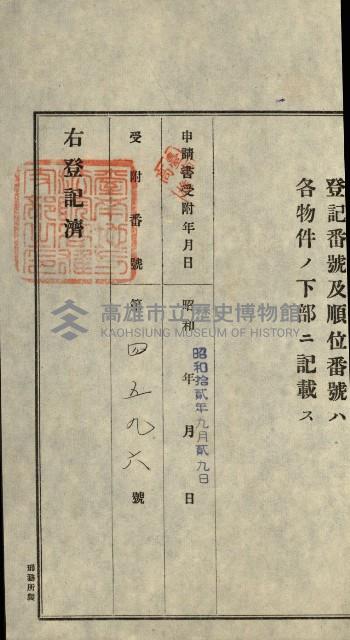 登記番號及順位番號ハ
各物件ノ下部ニ記載ス
申請書受附年月日
昭和 年 月 日
昭和拾貳年九月貳九日
受附番號
第四五九六號
右登記濟
高雄市立歷史博物館
KAOHSIUNG MUSEUM OF HISTORY